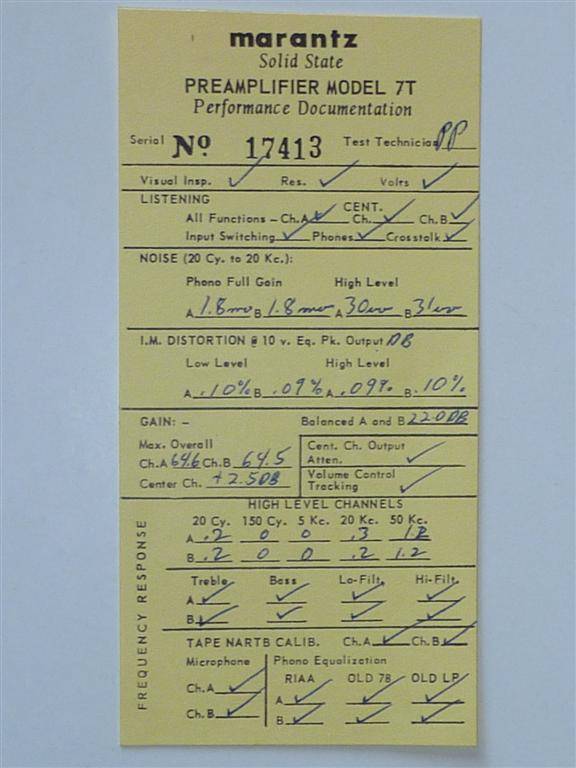 marantz
Solid State
PREAMPLIFIER MODEL 7T
Performance Documentation
Serial No 17413 Test Technician PP
Visual Insp. ✓ Res. ✓ Volts ✓
LISTENING
CENT.
All Functions – Ch.A ✓ Ch. ✓ Ch.B ✓
Input Switching ✓ Phones ✓ Crosstalk ✓
NOISE (20 Cy. to 20 Kc.):
Phono Full Gain High Level
A 1.8mv B 1.8mv A 30uv B 31uv
I.M. DISTORTION @ 10 v. Eq. Pk. Output DB
Low Level High Level
A .10% B .09% A .09% B .10%
GAIN: – Balanced A and B 22.0DB
Max. Overall
Ch.A 64.6 Ch.B 64.5
Center Ch. +2.5DB
Cent. Ch. Output
Atten. ✓
Volume Control
Tracking ✓
FREQUENCY RESPONSE
HIGH LEVEL CHANNELS
20 Cy. 150 Cy. 5 Kc. 20 Kc. 50 Kc.
A .2 0 0 .3 1.2
B .2 0 0 .2 1.2
Treble Bass Lo-Filt. Hi-Filt.
A ✓ ✓ ✓ ✓
B ✓ ✓ ✓ ✓
TAPE NARTB CALIB. Ch.A ✓ Ch.B ✓
Microphone
Ch.A ✓
Ch.B ✓
Phono Equalization
RIAA OLD 78 OLD LP
A ✓ ✓ ✓
B ✓ ✓ ✓